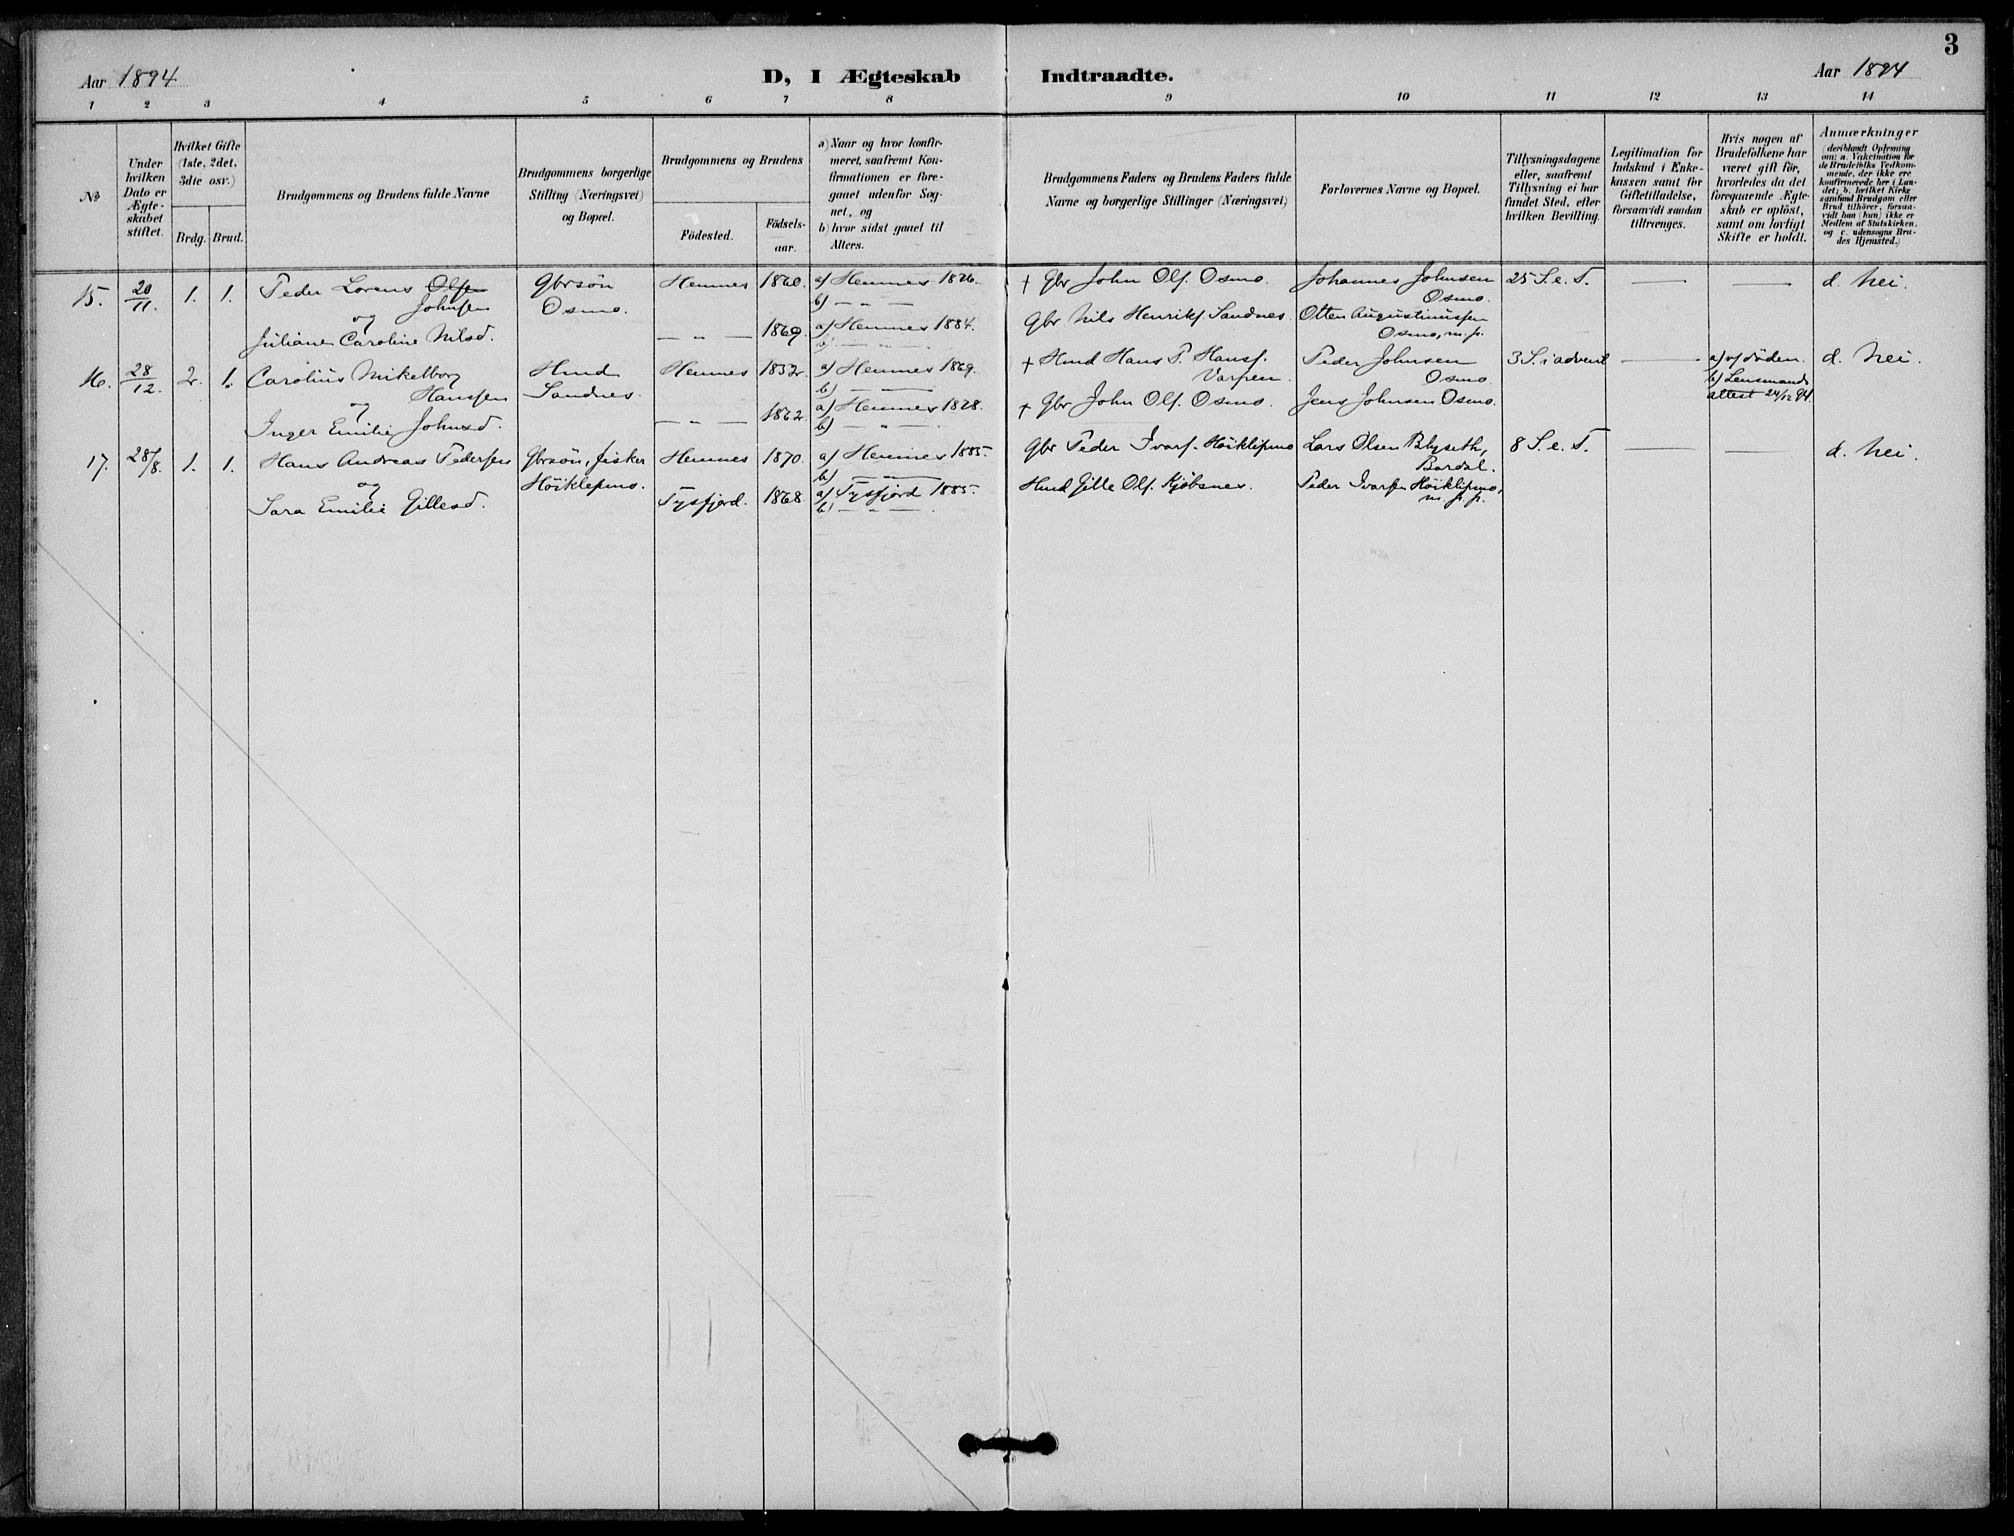 3
Aar 1894
D, I Ægteskab Indtraadte.
Aar 1894
1 2 3 4 5 6 7 8 9 10 11 12 13 14
No
Under hvilken Dato er Ægteskabet stiftet.
Hvilket Gifte (1ste, 2det, 3die osv.)
Brdg. Brud.
Brudgommens og Brudens fulde Navne
Brudgommens borgerlige Stilling (Næringsvei) og Bopæl.
Brudgommens og Brudens
Födested. Födselsaar.
a) Naar og hvor konfirmeret, saafremt Konfirmationen er foregaaet udenfor Sognet, og
b) hvor sidst gaaet til Alters.
Brudgommens Faders og Brudens Faders fulde Navne og borgerlige Stillinger (Næringsvei)
Forlovernes Navne og Bopæl.
Tillysningsdagene eller, saafremt Tillysning ei har fundet Sted, efter hvilken Bevilling.
Legitimation for Indskud i Enkekassen samt for Giftetilladelse, forsaavidt saadan tiltrænges.
Hvis nogen af Brudefolkene har været gift för, hvorledes da det foregaaende Ægteskab er oplöst, samt om lovligt Skifte er holdt.
Anmærkninger (deriblandt Oplysning om: a. Vakcination for de Brudefolks Vedkommende, der ikke ere konfirmerede her i Landet; b. hvilket Kirkesamfund Brudgom eller Brud tilhörer, forsaavidt han (hun) ikke er Medlem af Statskirken, og c. udensogns Brudes Hjemsted.)
15. 20/11. 1. 1. Peder Lorens Olsen Gbrsön Hemnes 1860. a) Hemnes 1876. + Gbr John Ols. Osmo. Johannes Johnsen 25 S. e. T. — — d. Nei.
Johnsen Osmo. b) — " — Osmo.
og Gbr Nils Henriks. Sandnes. Otten Augustinussen
Juliane Caroline Nilsd. — " — 1869. a) Hemnes 1884. Osmo, m. p.
b) — " —
16. 28/12. 2. 1. Carolius Mikelborg Hmd Hemnes 1852. a) Hemnes 1869. + Hmd Hans P. Hans. Peder Johnsen 3 S. i advent — a) v/ döden. d. Nei.
Hanssen Sandnes. b) — " — Varpen. Osmo. b) Lensmands
og attest 24/12 94.
Inger Emilie Johnsd. — " — 1862. a) Hemnes 1878. + Gbr John Ols. Osmo. Jens Johnsen Osmo.
b) — " —
17. 28/8. 1. 1. Hans Andreas Pedersen Gbrsön, fisker Hemnes 1870. a) Hemnes 1885. Gbr Peder Ivars. Höiklepmo Lars Olsen Blyseth, 8 S. e. T. — — d. Nei.
og Höiklepmo. b) — " — Bardal.
Sara Emilie Gillesd. Tysfjord. 1868. a) Tysfjord 1885. Hmd Gille Ols. Kjöbsnes. Peder Ivarsen Höiklepmo,
b) — " — m. p. p.